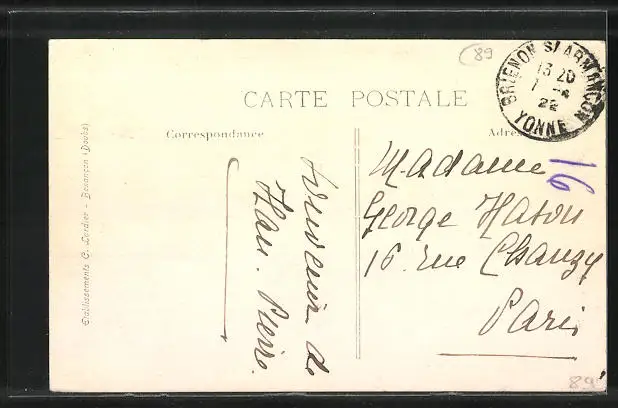 89
BRIENON S/ ARMANÇON
13 20
1 -4
22
YONNE
CARTE POSTALE
Correspondance
Adresse
16
Madame
George
16 rue Chanzy
Paris
Souvenir de
Jean. Pierre.
Etablissements C. Lardier - Besançon (Doubs)
89